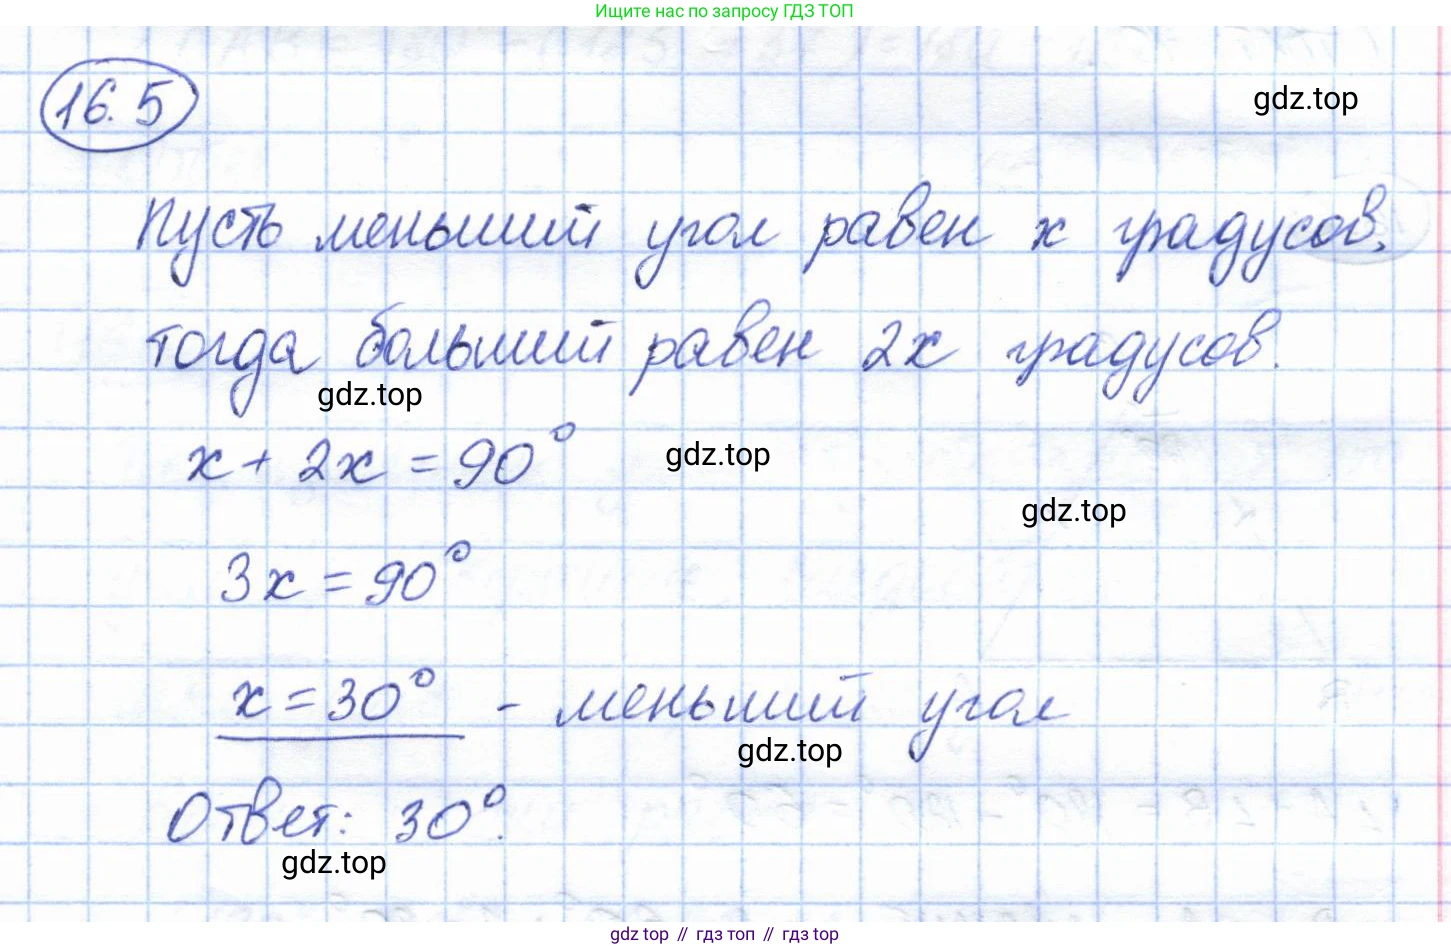 Ищите нас по запросу ГДЗ ТОП
16.5
gdz.top
Пусть меньший угол равен x градусов,
тогда больший равен 2x градусов.
gdz.top
x + 2x = 90°
gdz.top
gdz.top
3x = 90°
x = 30° - меньший угол
gdz.top
Ответ: 30°.
gdz.top
gdz top // гдз топ // гдз top